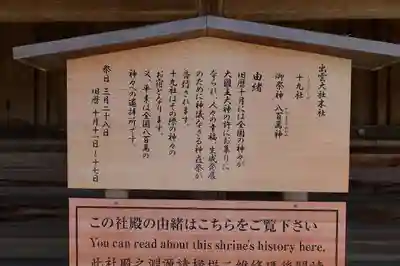 出雲大社末社
十九社
御祭神 八百萬神
由緒
旧暦十月には全国の神々が
大國主大神の許にお集りに
なられ、人々の幸福・生成発展
のために神議なさる神在祭が
斎行されます。
十九社はその際の神々の
お宿となります。
又、平素は全国八百萬の
神々への遙拝所です。
祭日 三月二十八日
旧暦 十月十一日～十七日
この社殿の由緒はこちらをご覧下さい
You can read about this shrine's history here.